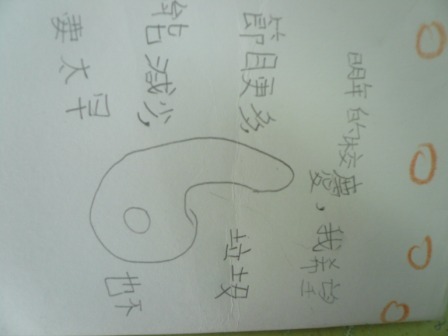 明年的校慶，我希望
節目更多，垃圾
能減少，也不
要太早